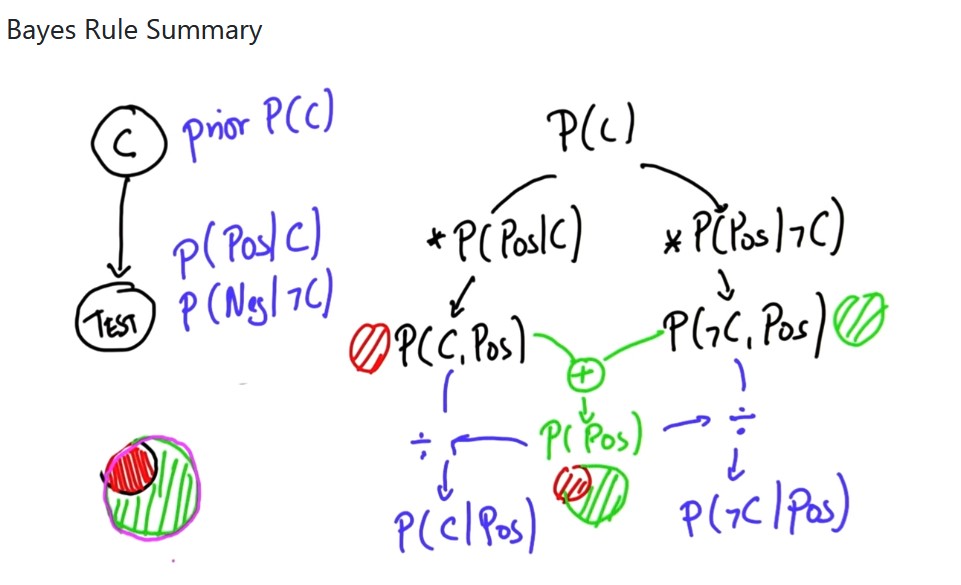 Bayes Rule Summary
C
prior P(C)
P(Pos|C)
P(Neg|¬C)
TEST
P(C)
* P(Pos|C)
* P(Pos|¬C)
P(C,Pos)
P(¬C,Pos)
+
÷
P(Pos)
÷
P(C|Pos)
P(¬C|Pos)